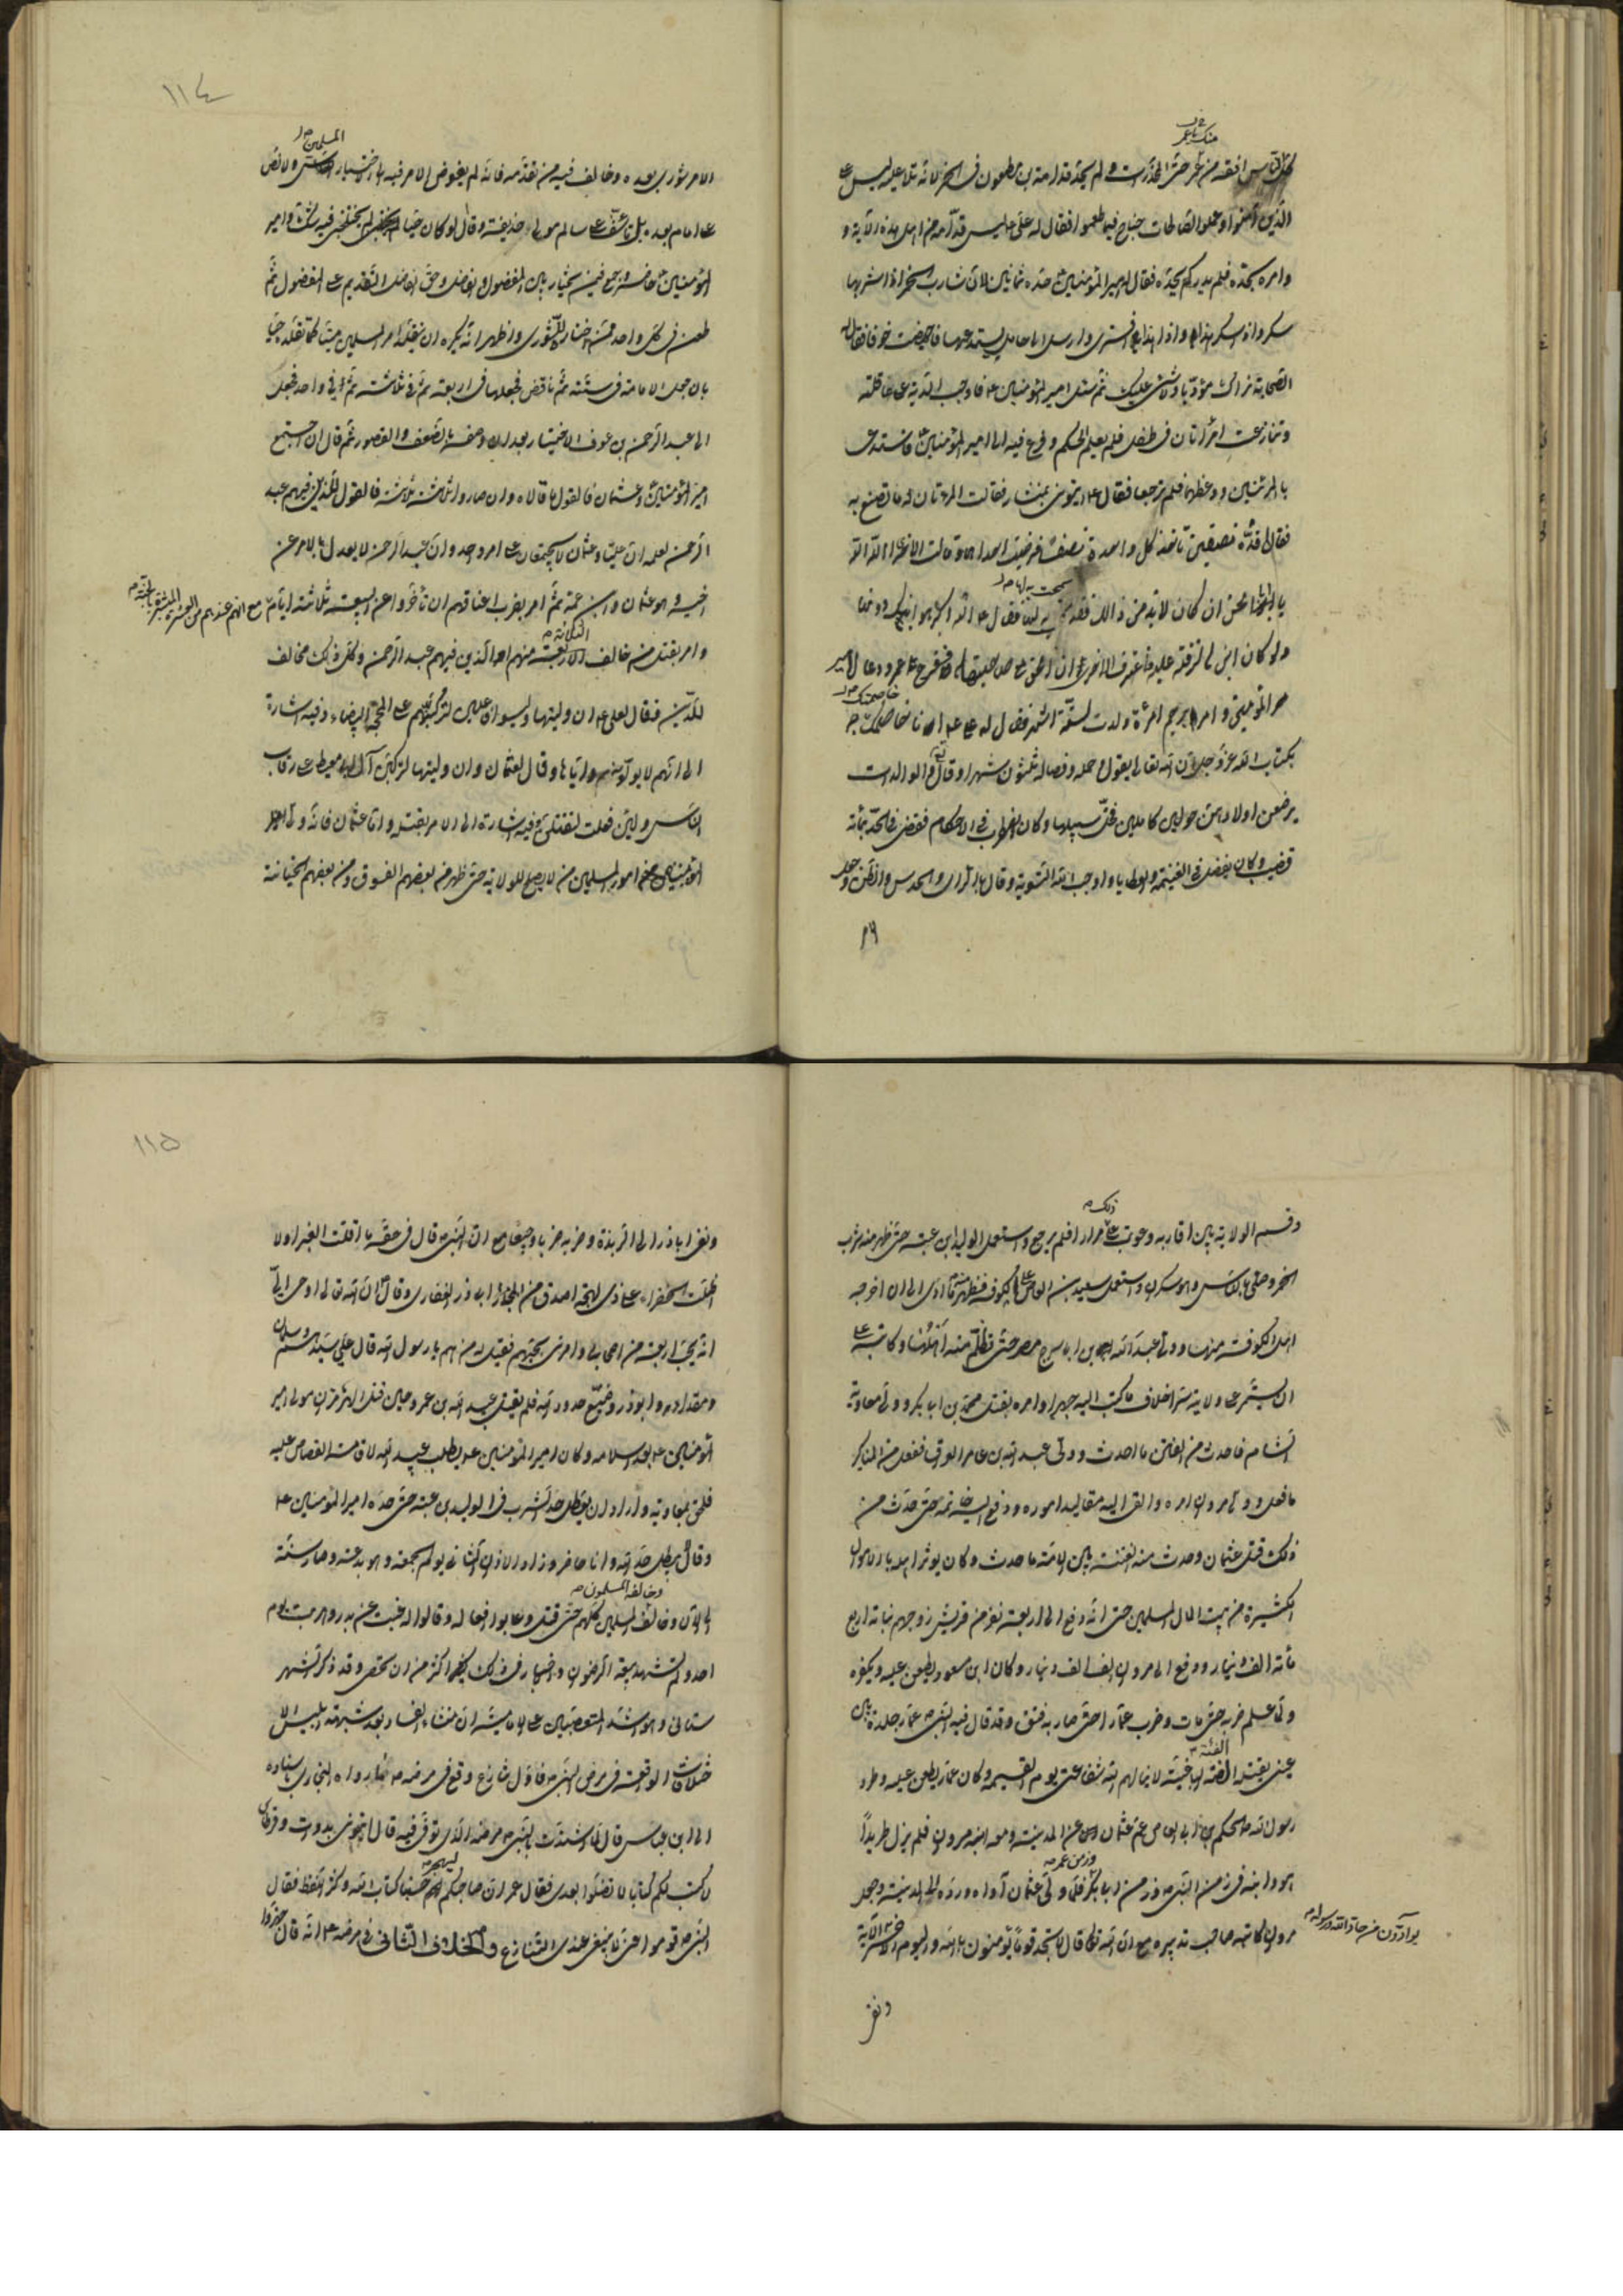 منك يا عمر خ ل
كل الناس افقه من عمر حتى المخدرات ولم يحد قدامة بن مظعون في الخمر لانه تلا عليه ليس على
الذين آمنوا وعملوا الصالحات جناح فيما طعموا فقال له علي ع ليس قدامة من اهل هذه الآية و
وامره بحده فلم يدر كم يحده فقال امير المؤمنين ع حده ثمانين لان شارب الخمر اذا شربها
سكر واذا سكر هذى واذا هذى افترى وارسل الى حامل يستدعيها فاجهضت خوفا فقال له
الصحابة نراك مؤدبا ولا شئ عليك ثم سئل امير المؤمنين ع فاوجب الدية على عاقلته
وتنازعت امرأتان في طفل فلم يعلم الحكم وفزع فيه الى امير المؤمنين ع فاستدعى
بالمرئتين ووعظهما فلم ترجعا فقال ع ايتوني بمنشار فقالت المرئتان له ما تصنع به
فقال اقده نصفين تاخذ كل واحدة نصفا فرضيت احداهما وقالت الاخرى الله الله
يا ابا الحسن ان كان لابد من ذلك فقد سمحت به لها فقال ع الله اكبر هو ابنك دونها
ولو كان ابنها لرقت عليه فاعترفت الاخرى ان الحق مع صاحبتها ففرح عمر ودعا لامير
المؤمنين و امر برجم امرأة ولدت لستة اشهر فقال له علي ع ان خاصمتك
بكتاب الله عز وجل ان الله تعالى يقول وحمله وفصاله ثلثون شهرا وقال والوالدات
يرضعن اولادهن حولين كاملين فخلى سبيلها وكان يضطرب في الاحكام فقضى في الجد بمائة
قضيب وكان يفضل في الغنيمة والعطايا واوجب الله التسوية وقال بالرأي والحدس والظن وجعل
١١٤
الامر شورى بعده وخالف فيه من تقدمه فانه لم يفوض الامر فيه الى اختيار المسلمين ولا نص
على امام بعده بل تأسف على سالم مولى حذيفة وقال لو كان حيا لم يختلجني فيه شك وامير
المؤمنين ع حاضر وجمع فيمن يختار بين المفضول والفاضل وحق الفاضل التقديم على المفضول ثم
طعن في كل واحد ممن اختاره للشورى واظهر انه يكره ان يتقلد امر المسلمين ميتا كما تقلده حيا
بان جعل الامامة في ستة ثم ناقض فجعلها في اربعة ثم في ثلاثة ثم في واحد فجعل
الى عبد الرحمن بن عوف الاختيار بعد ان وصفه بالضعف والقصور ثم قال ان اجتمع
امير المؤمنين ع وعثمان فالقول ما قالاه وان صاروا ثلثة ثلثة فالقول للذين فيهم عبد
الرحمن لعلمه ان عليا وعثمان لا يجتمعان على امر واحد وان عبد الرحمن لا يعدل بالامر عن
اخيه وهو عثمان وابن عمه ثم امر بضرب اعناقهم ان تأخروا عن البيعة ثلاثة ايام مع انهم عندهم من العشرة المبشرة بالجنة
وامر بقتل من خالف الاربعة منهم او الذين فيهم عبد الرحمن وكل ذلك مخالف
للدين فقال لعلي ع ان وليتها وليسوا فاعلين لتركبنهم على المحجة البيضاء وفيه اشارة
الى انهم لا يولونه اياها وقال لعثمان وان وليتها لتركبن آل ابي معيط على رقاب
الناس ولئن فعلت لتقتلن وفيه اشارة الى الامر بقتله واما عثمان فانه ولى
المؤمنين امور المسلمين من لا يصلح للولاية حتى ظهر من بعضهم الفسوق ومن بعضهم الخيانة
ذلك
وقسم الولاية بين اقاربه وعوتب على مرارا فلم يرجع واستعمل الوليد بن عتبة حتى ظهر منه شرب
الخمر وصلى بالناس وهو سكران واستعمل سعيد بن العاص على الكوفة فظهر منه ما ادى الى ان اخرجه
اهل الكوفة منها وولى عبد الله بن ابي سرح مصر حتى تظلم منه اهلها وكاتبه
ان يستمر على ولايته سرا خلاف ما كتب اليه جهرا وامره بقتل محمد بن ابي بكر وولى معاوية
الشام فاحدث من الفتن ما احدث وولى عبد الله بن عامر العراق ففعل من المناكير
ما فعل وولى مروان امره والقى اليه مقاليد اموره ودفع اليه خاتمه حتى حدث من
ذلك قتل عثمان وحدث منه الفتنة بين الامة ما حدث وكان يوثر اهله بالاموال
الكثيرة من بيت المال المسلمين حتى انه دفع الى اربعة نفر من قريش زوجهم بناته اربع
مائة الف دينار ودفع الى مروان الف الف دينار وكان ابن مسعود يطعن عليه ويكفره
ولما علم ضربه حتى مات وضرب عمارا حتى صار به فتق وقد قال فيه النبي ص عمار جلدة بين
عيني يقتله الفئة الباغية لا ينالهم الله شفاعتي يوم القيمة وكان عمار يطعن عليه وطرد
رسول الله ص الحكم بن ابي العاص عم عثمان عن المدينة ومعه ابنه مروان فلم يزل طريدا
هو وابنه في زمن النبي ص وزمن ابي بكر وزمن عمر فلما ولي عثمان آواه ورده الى المدينة وجعل
مروان كاتبه صاحب تدبيره مع ان الله تعالى قال لا تجد قوما يؤمنون بالله واليوم الآخر يوادون من حاد الله ورسوله الآية
ونفى
١١٥
ونفى ابا ذر الى الربذة وضربه ضربا وجيعا مع ان النبي ص قال في حقه ما اقلت الغبراء ولا
اظلت الخضراء على ذي لهجة اصدق من ابي ذر الغفاري وقال ان الله تعالى اوحى الي
انه يحب اربعة من اصحابي وامرني بحبهم فقيل له من هم يا رسول الله قال علي سيدهم وسلمان
ومقداد وابوذر وضيع حدود الله فلم يقتل عبيد الله بن عمر حين قتل الهرمزان مولى امير
المؤمنين ع بعد اسلامه وكان امير المؤمنين ع يطلب عبيد الله لاقامة القصاص عليه
فلحق بمعاوية واراد ان يعطل حد الشرب في الوليد بن عتبة حتى حده امير المؤمنين ع
وقال لا يبطل حد الله وانا حاضر وزاد الاذان الثاني يوم الجمعة وهو بدعة وصار سنة
الى الآن وخالفه المسلمون كلهم حتى قتل وعابوا افعاله وقالوا له غبت عن بدر وهربت يوم
احد ولم تشهد بيعة الرضوان والاخبار في ذلك كله اكثر من ان تحصى وقد ذكر الشهر
ستاني وهو اشد المتعصبين على الامامية ان منشاء الفساد بعد شبهة ابليس الا
ختلافات الواقعة في مرض النبي ص فاول تنازع وقع في مرضه ص فيما رواه البخاري باسناده
الى ابن عباس قال لما اشتد بالنبي ص مرضه الذي توفي فيه قال ايتوني بدوات وقرطاس
اكتب لكم كتابا لا تضلوا بعدي فقال عمر ان صاحبكم ليهجر حسبنا كتاب الله وكثر اللغط فقال
النبي ص قوموا عني لا ينبغي عندي التنازع والخلاف الثاني في مرضه ع انه قال جهزوا